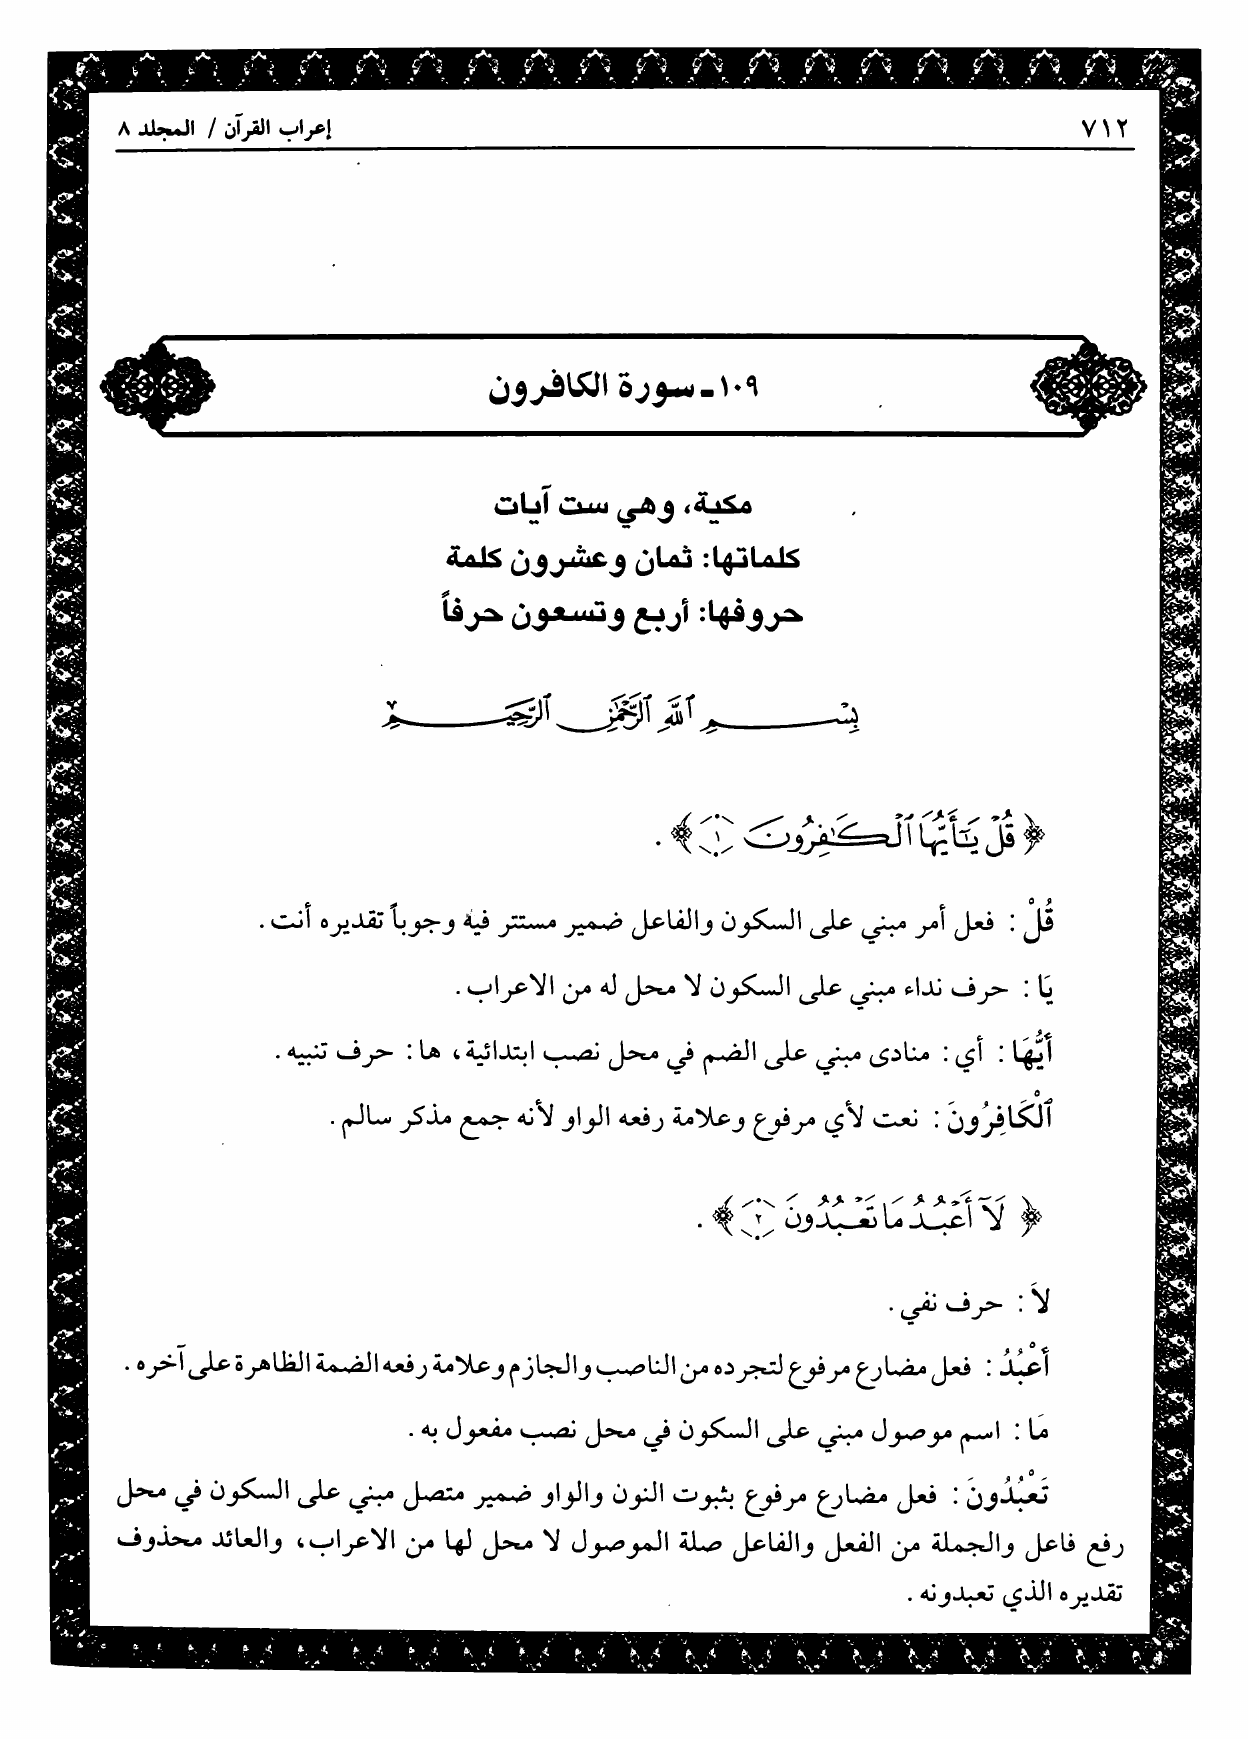 ٧١٢
إعراب القرآن / المجلد ٨
١٠٩ ـ سورة الكافرون
مكية، وهي ست آيات
كلماتها: ثمان وعشرون كلمة
حروفها: أربع وتسعون حرفاً
بِسْمِ ٱللَّهِ ٱلرَّحْمَٰنِ ٱلرَّحِيمِ
﴿ قُلْ يَٰٓأَيُّهَا ٱلْكَٰفِرُونَ ١ ﴾ .
قُلْ : فعل أمر مبني على السكون والفاعل ضمير مستتر فيه وجوباً تقديره أنت .
يَا : حرف نداء مبني على السكون لا محل له من الاعراب .
أَيُّهَا : أي : منادى مبني على الضم في محل نصب ابتدائية ، ها : حرف تنبيه .
ٱلْكَافِرُونَ : نعت لأي مرفوع وعلامة رفعه الواو لأنه جمع مذكر سالم .
﴿ لَآ أَعْبُدُ مَا تَعْبُدُونَ ٢ ﴾ .
لاَ : حرف نفي .
أَعْبُدُ : فعل مضارع مرفوع لتجرده من الناصب والجازم وعلامة رفعه الضمة الظاهرة على آخره .
مَا : اسم موصول مبني على السكون في محل نصب مفعول به .
تَعْبُدُونَ : فعل مضارع مرفوع بثبوت النون والواو ضمير متصل مبني على السكون في محل
رفع فاعل والجملة من الفعل والفاعل صلة الموصول لا محل لها من الاعراب ، والعائد محذوف
تقديره الذي تعبدونه .